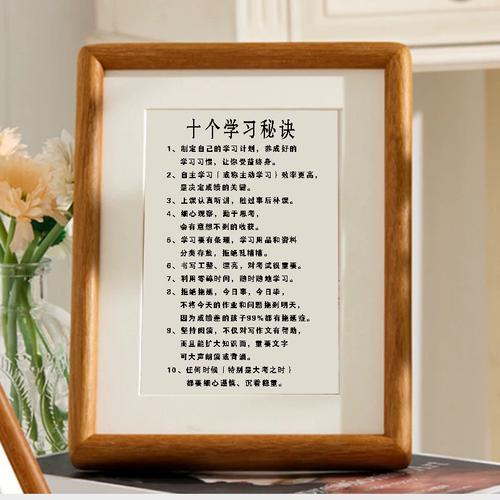 十个学习秘诀
1、制定自己的学习计划，养成好的
学习习惯，让你受益终身。
2、自主学习（或称主动学习）效率更高，
是决定成绩的关键。
3、上课认真听讲，胜过事后补课。
4、细心观察，勤于思考，
会有意想不到的收获。
5、学习要有条理，学习用品和资料
分类存放，拒绝乱糟糟。
6、书写工整、漂亮，对考试很重要。
7、利用零碎时间，随时随地学习。
8、拒绝拖拖，今日事，今日毕，
不将今天的作业和问题拖到明天，
因为成绩差的孩子99%都有拖拖症。
9、坚持阅读，不仅对写作文有帮助，
而且能扩大知识面，重要文字
可大声朗读或背诵。
10、任何时候（特别是大考之时）
都要细心谨慎、沉着稳重。